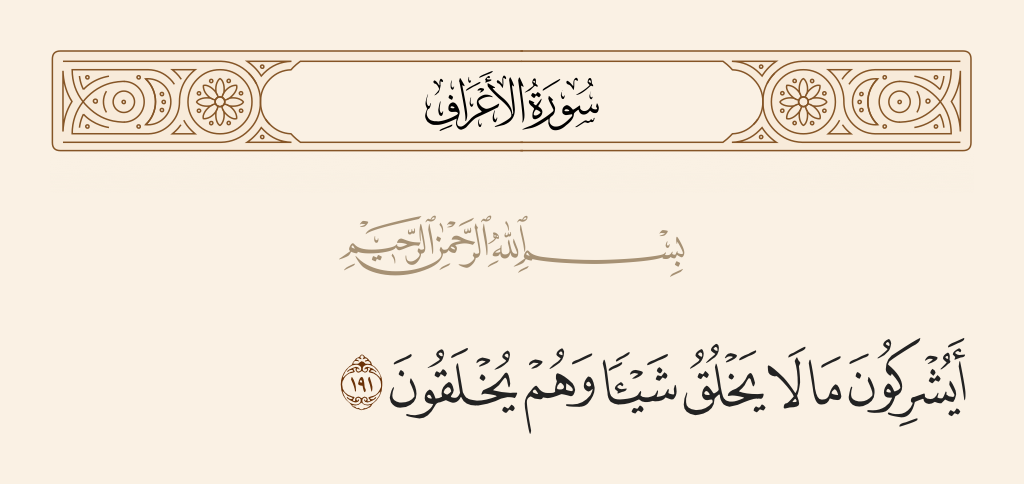 سُورَةُ الأَعْرَافِ
بِسْمِ ٱللَّهِ ٱلرَّحْمَٰنِ ٱلرَّحِيمِ
أَيُشْرِكُونَ مَا لَا يَخْلُقُ شَيْـًٔا وَهُمْ يُخْلَقُونَ ١٩١